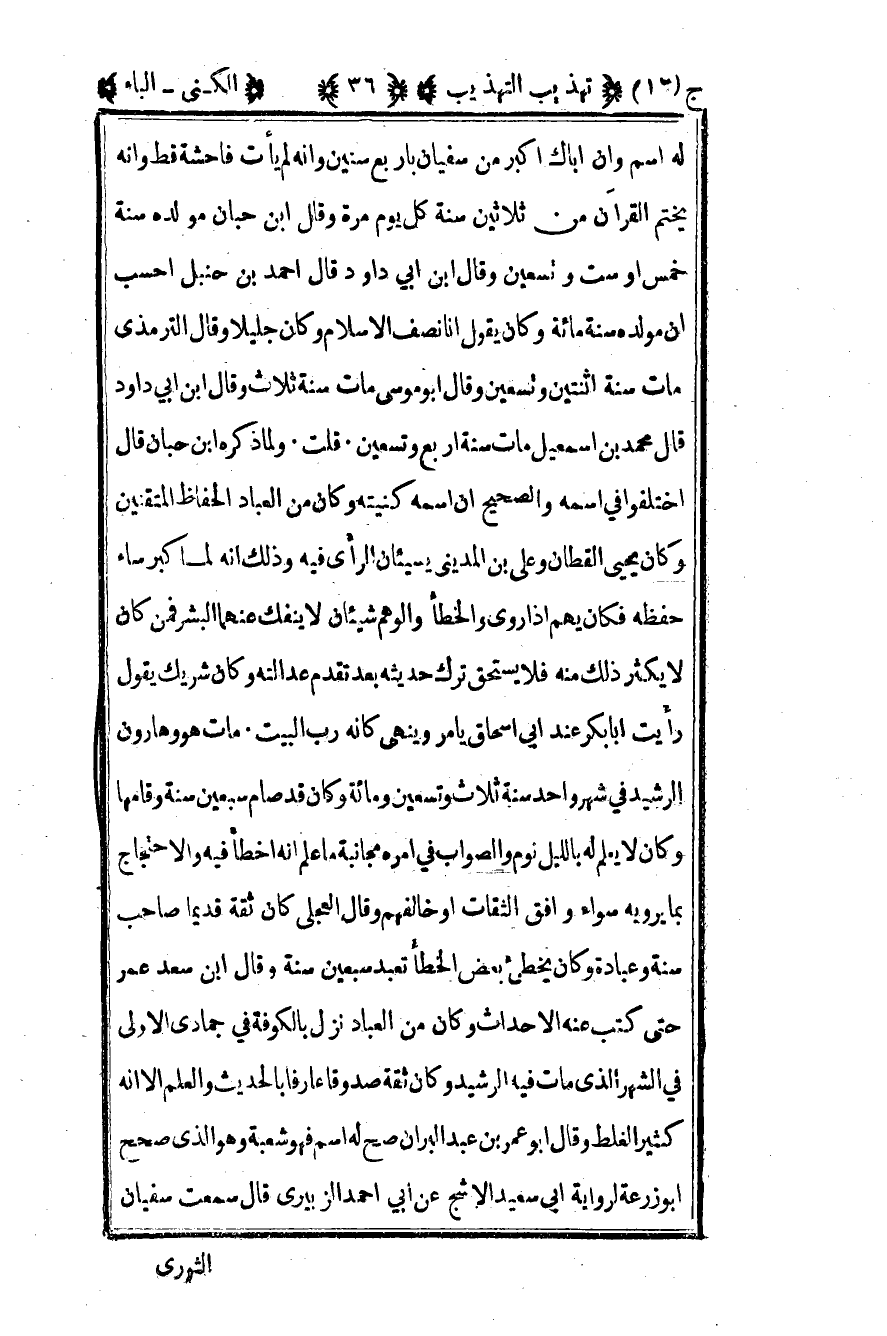 ج (١٢) ﴿ تهذيب التهذيب ﴾ ﴿ ٣٦ ﴾ ﴿ الكنى - الباء ﴾
له اسم وان اباك اكبر من سفيان باربع سنين وانه لم يأت فاحشة قط وانه
يختم القرآن من ثلاثين سنة كل يوم مرة وقال ابن حبان مولده سنة
خمس او ست و تسعين وقال ابن ابي داود قال احمد بن حنبل احسب
ان مولده سنة مائة وكان يقول انا نصف الاسلام وكان جليلا وقال الترمذى
مات سنة اثنتين وتسعين وقال ابو موسى مات سنة ثلاث وقال ابن ابي داود
قال محمد بن اسمعيل مات سنة اربع وتسعين · قلت · ولما ذكره ابن حبان قال
اختلفوا في اسمه والصحيح ان اسمه كنيته وكان من العباد الحفاظ المتقنين
وكان يحيى القطان وعلى بن المدينى يسيئان الرأى فيه وذلك انه لما كبر ساء
حفظه فكان يهم اذا روى والخطأ والوهم شيئان لا ينفك عنهما البشر فمن كان
لا يكثر ذلك منه فلا يستحق ترك حديثه بعد تقدم عدالته وكان شريك يقول
رأيت ابا بكر عند ابي اسحاق يامر وينهى كانه رب البيت · مات هو وهارون
الرشيد في شهر واحد سنة ثلاث وتسعين ومائة وكان قد صام سبعين سنة وقامها
وكان لا يعلم له بالليل نوم والصواب في امره مجانبة ما علم انه اخطأ فيه والاحتجاج
بما يرويه سواء وافق الثقات او خالفهم وقال العجلى كان ثقة قديما صاحب
سنة وعبادة وكان يخطئ بعض الخطأ تعبد سبعين سنة وقال ابن سعد عمر
حتى كتب عنه الاحداث وكان من العباد نزل بالكوفة في جمادى الاولى
في الشهر الذى مات فيه الرشيد وكان ثقة صدوقا عارفا بالحديث والعلم الا انه
كثير الغلط وقال ابو عمر بن عبد البر ان صح له اسم فهو شعبة وهو الذى صحح
ابو زرعة لرواية ابي سعيد الاشج عن ابي احمد الزبيرى قال سمعت سفيان
الثورى